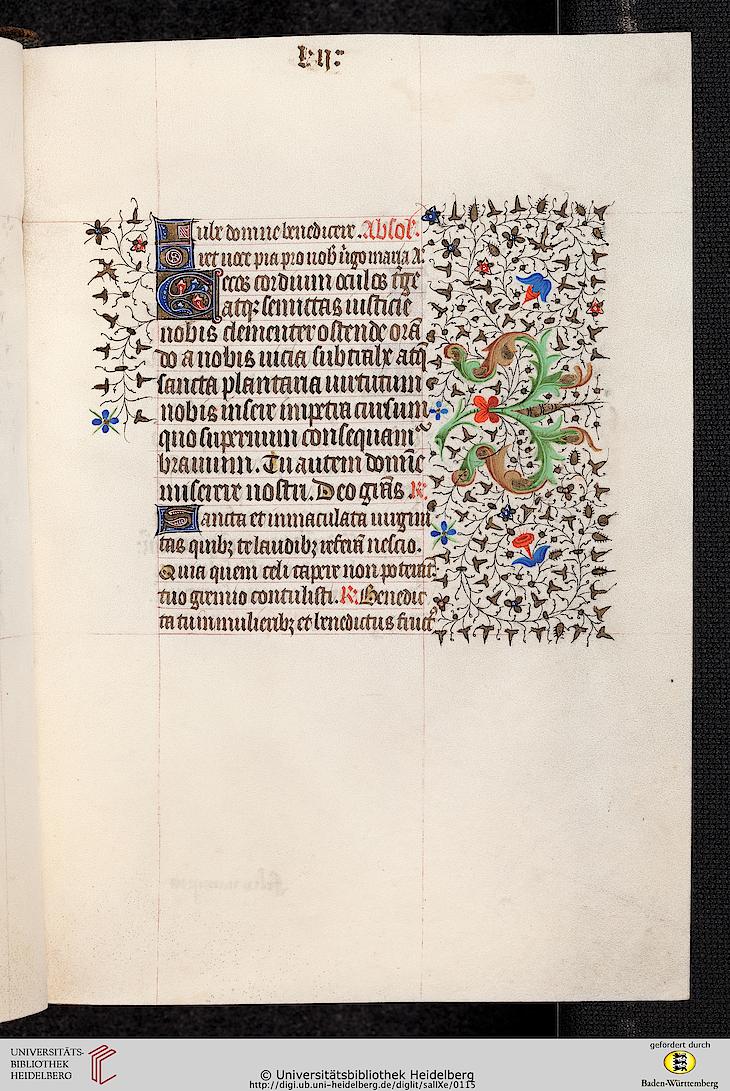 lvij
Iube domne benedicere. Absol'.
Oret uoce pia pro nob' u'go maria A.
Cecos cordium oculos t'ge
atq; semittas iusticie
nobis clementer ostende ora
do a nobis uicia subtrahe atq;
sancta plantaria uirtutum
nobis insere impetra cursum
quo supernum consequam'
brauium. Tu autem domine
miserere nostri. Deo gr̄as R.
Sancta et immaculata uirgini
tas quib; te laudib; referā nescio.
Quia quem celi capere non poterāt
tuo gremio contulisti. R. Benedic
ta tu in mulierib; et benedictus fruct'
UNIVERSITÄTS-
BIBLIOTHEK
HEIDELBERG
© Universitätsbibliothek Heidelberg
http://digi.ub.uni-heidelberg.de/diglit/salIXe/0115
gefördert durch
Baden-Württemberg